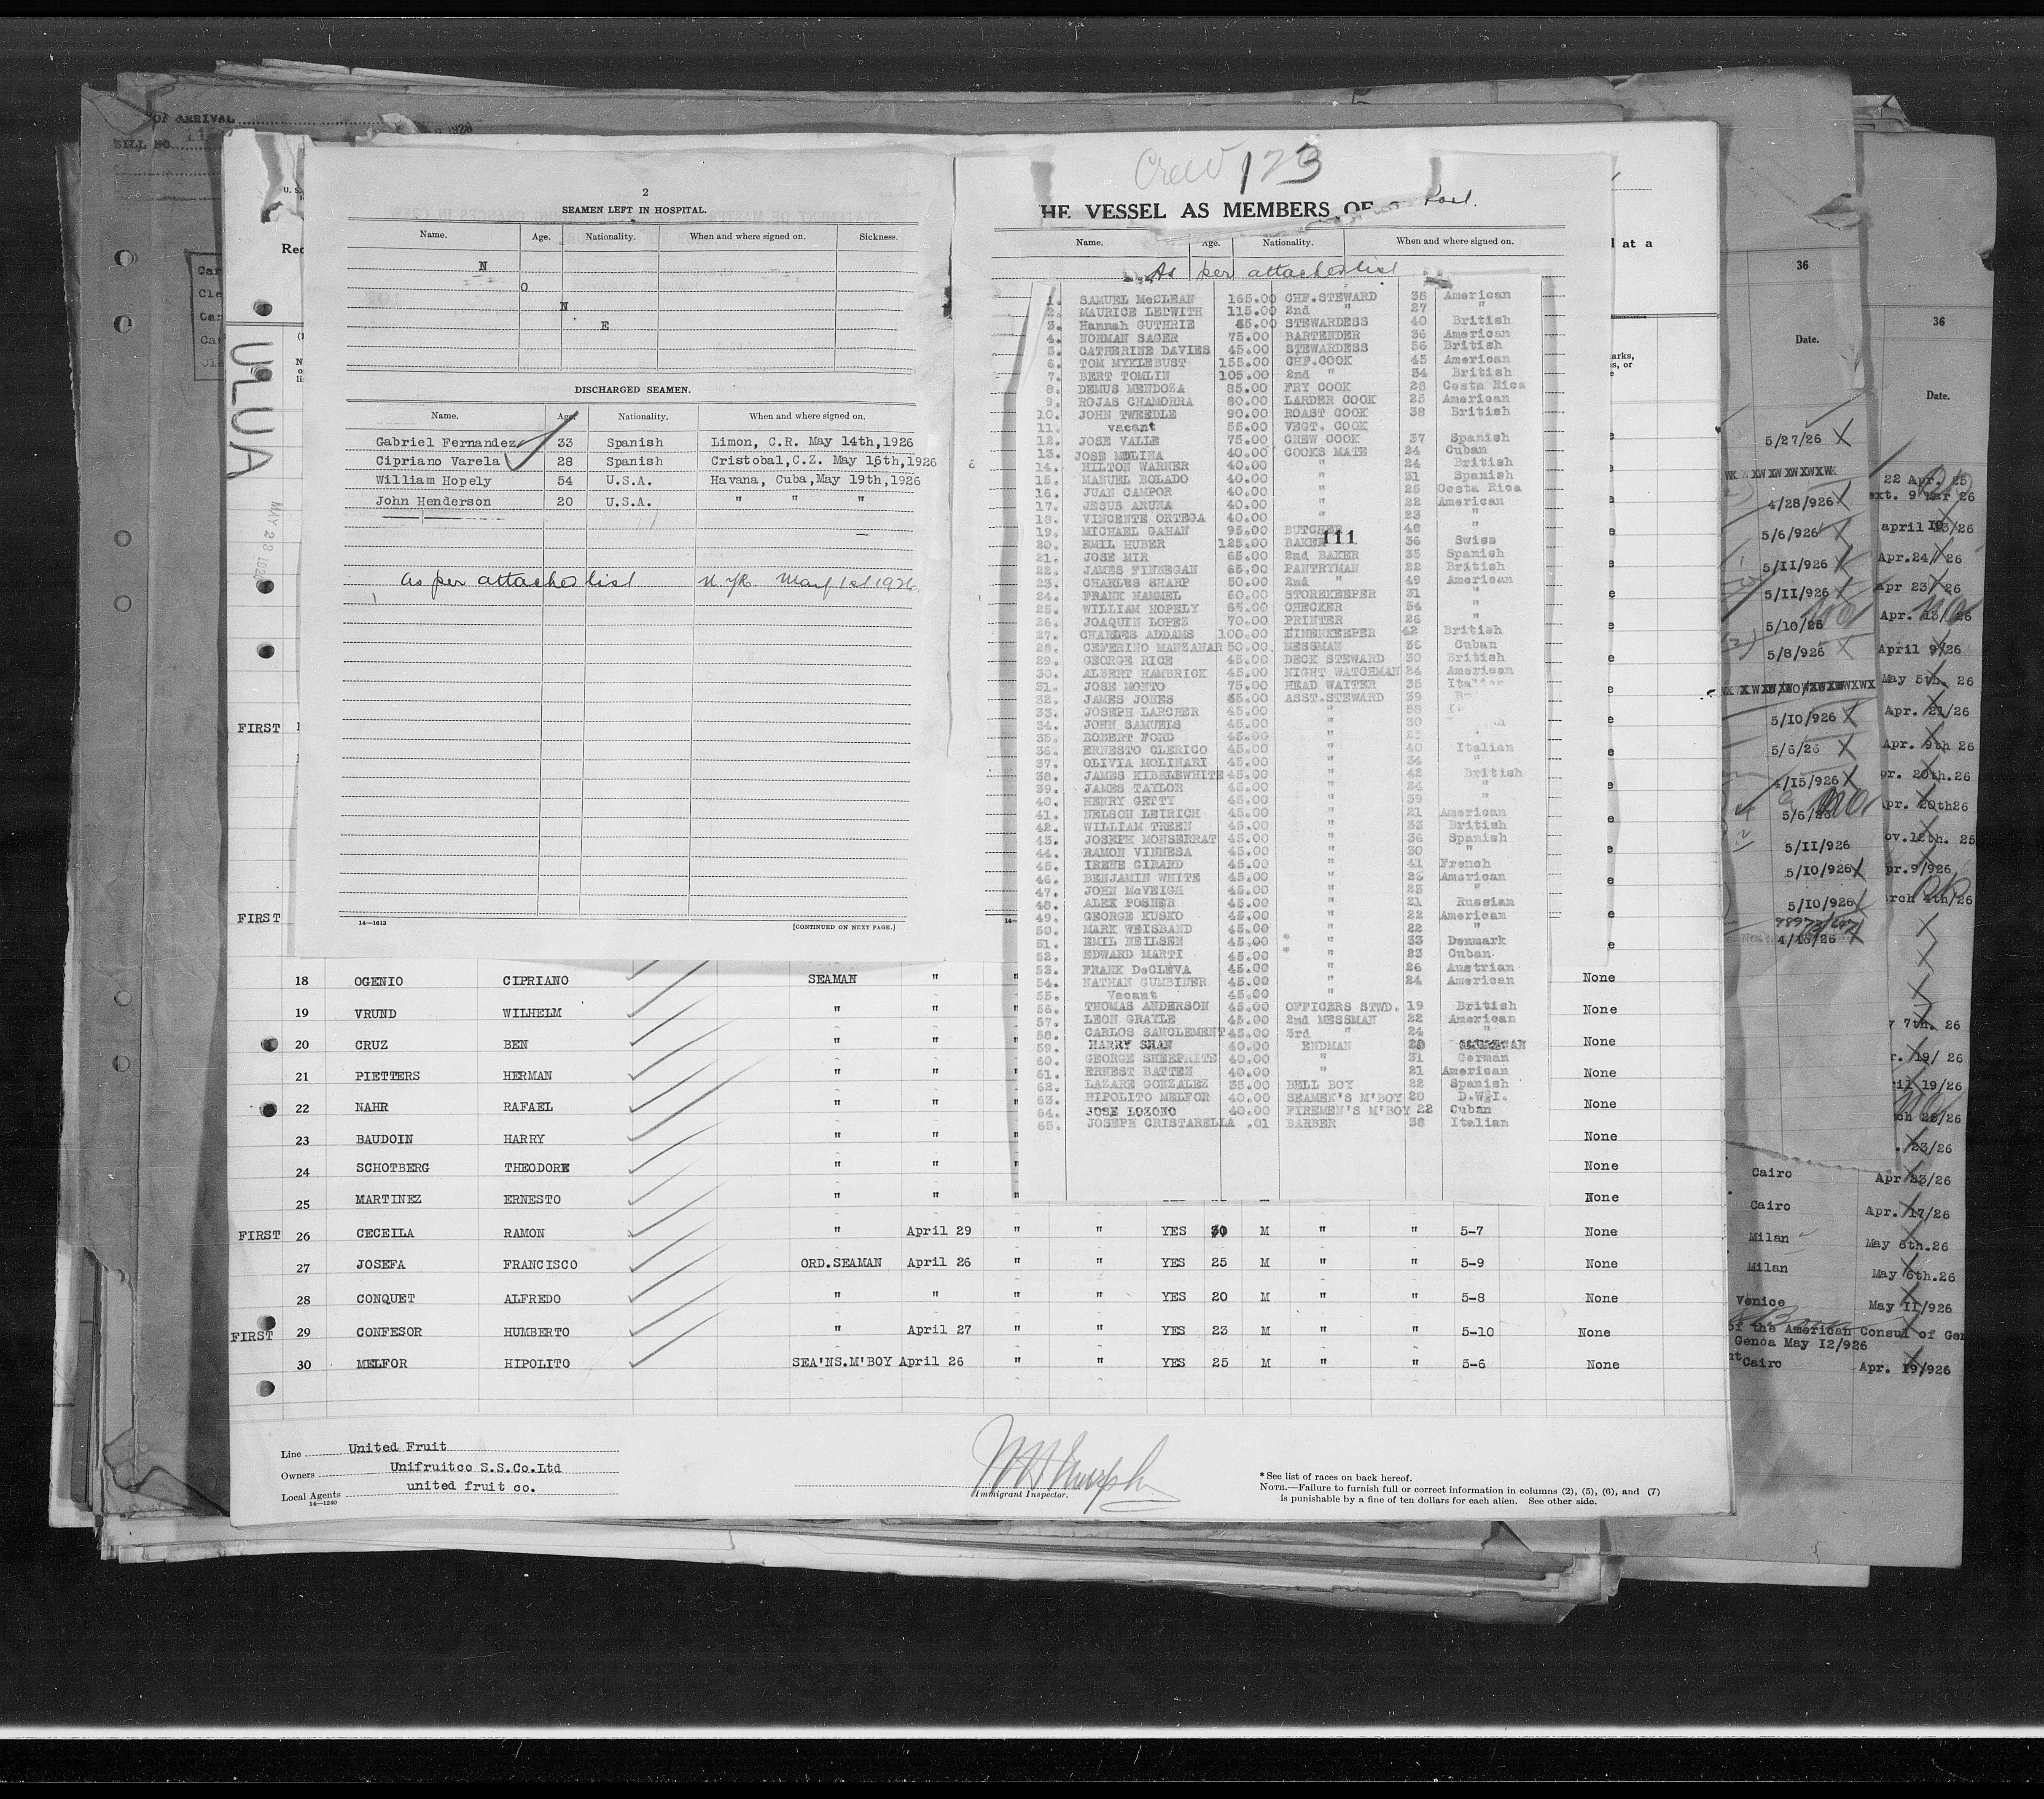 OF ARRIVAL
BILL NO.
ULUA
Crew 173
2
SEAMEN LEFT IN HOSPITAL.
Name. Age. Nationality. When and where signed on. Sickness.
N
O
N
E
DISCHARGED SEAMEN.
Name. Age. Nationality. When and where signed on.
Gabriel Fernandez 33 Spanish Limon, C.R. May 14th,1926
Cipriano Varela 28 Spanish Cristobal,C.Z. May 16th,1926
William Hopely 54 U.S.A. Havana, Cuba,May 19th,1926
John Henderson 20 U.S.A. " " "
As per attached list N.YK. May 1st 1926
14—1613
[CONTINUED ON NEXT PAGE.]
HE VESSEL AS MEMBERS OF
Name. Age. Nationality. When and where signed on.
As per attached list
1. SAMUEL McCLEAN 165.00 CHF.STEWARD 38 American
2. MAURICE LEDWITH 115.00 2nd " 27 "
3. Hannah GUTHRIE 45.00 STEWARDESS 40 British
4. NORMAN SAGER 75.00 BARTENDER 36 American
5. CATHERINE DAVIES 45.00 STEWARDESS 56 British
6. TOM MYKLEBUST 155.00 CHF.COOK 45 American
7. BERT TOMLIN 105.00 2nd " 34 British
8. DEMUS MENDOZA 85.00 FRY COOK 28 Costa Rica
9. ROJAS CHAMORRA 80.00 LARDER COOK 25 American
10. JOHN TWEEDLE 90.00 ROAST COOK 38 British
11. vacant 55.00 VEGT. COOK
12. JOSE VALLE 75.00 CREW COOK 37 Spanish
13. JOSE MOLINA 40.00 COOKS MATE 24 Cuban
14. HILTON WARNER 40.00 " 24 British
15. MANUEL BOLADO 40.00 " 31 Spanish
16. JUAN CAMPOR 40.00 " 25 Costa Rica
17. JESUS ARUNA 40.00 " 22 American
18. VINCENTE ORTEGA 40.00 " 23 "
19. MICHAEL GAHAN 95.00 BUTCHER 48 "
111
20. EMIL HUBER 125.00 BAKER 36 Swiss
21. JOSE MIR 65.00 2nd BAKER 35 Spanish
22. JAMES FINNEGAN 65.00 PANTRYMAN 22 British
23. CHARLES SHARP 50.00 2nd " 49 American
24. FRANK HAMMEL 60.00 STOREKEEPER 31 "
25. WILLIAM HOPELY 65.00 CHECKER 54 "
26. JOAQUIN LOPEZ 70.00 PRINTER 26 "
27. CHARLES ADDAMS 100.00 LINENKEEPER 42 British
28. CEFERINO MANZANAR 50.00 MESSMAN 36 Cuban
29. GEORGE RICE 45.00 DECK STEWARD 30 British
30. ALBERT HAMBRICK 45.00 NIGHT WATCHMAN 24 American
31. JOSE MONTO 75.00 HEAD WAITER 35 Italian
32. JAMES JONES 45.00 ASST.STEWARD 39
33. JOSEPH LARCHER 45.00 " 58
34. JOHN SAMUELS 45.00 " 30
35. ROBERT FORD 45.00 " "
36. ERNESTO CLERICO 45.00 " 40 Italian
37. OLIVIA MOLINARI 45.00 " 34 "
38. JAMES KIBBLEWHITE 45.00 " 42 British
39. JAMES TAYLOR 45.00 " 24 "
40. HENRY GETTY 45.00 " 39 "
41. NELSON LEIRICH 45.00 " 21 American
42. WILLIAM TREEN 45.00 " 33 British
43. JOSEPH MONSERRAT 45.00 " 36 Spanish
44. RAMON VINNESA 45.00 " 30 "
45. IRENE GIRARD 45.00 " 41 French
46. BENJAMIN WHITE 45.00 " 25 American
47. JOHN McVEIGH 45.00 " 23 "
48. ALEX POSNER 45.00 " 21 Russian
49. GEORGE KUSKO 45.00 " 22 American
50. MARK WEISBAND 45.00 " 22 "
51. EMIL NEILSEN 45.00 * " 33 Denmark
52. EDWARD MARTI 45.00 * " 23 Cuban
53. FRANK DeCLEVA 45.00 " 26 Austrian
54. NATHAN GUMBINER 45.00 " 24 American
55. Vacant 45.00 "
56. THOMAS ANDERSON 45.00 OFFICERS STWD. 19 British
57. LEON GRAYLE 45.00 2nd MESSMAN 22 American
58. CARLOS SANCLEMENT 45.00 3rd " 24 "
59. HARRY SHAN 40.00 ENDMAN
60. GEORGE SHEEPRITE 40.00 " 31 German
61. ERNEST BATTEN 40.00 " 21 American
62. LAZARE GONZALEZ 35.00 BELL BOY 22 Spanish
63. HIPOLITO MELFOR 40.00 SEAMEN'S M'BOY 20 D.W.I.
64. JOSE LOZONO 40.00 FIREMEN'S M'BOY 22 Cuban
65. JOSEPH CRISTARELLA .01 BARBER 38 Italian
FIRST
FIRST
18 OGENIO CIPRIANO SEAMAN " " None
19 VRUND WILHELM " " None
20 CRUZ BEN " " None
21 PIETTERS HERMAN " " None
22 NAHR RAFAEL " " None
23 BAUDOIN HARRY " " None
24 SCHOTBERG THEODORE " " None
25 MARTINEZ ERNESTO " " None
FIRST 26 CECEILA RAMON " April 29 " " YES 30 M " " 5-7 None
27 JOSEFA FRANCISCO ORD.SEAMAN April 26 " " YES 25 M " " 5-9 None
28 CONQUET ALFREDO " " " " YES 20 M " " 5-8 None
FIRST 29 CONFESOR HUMBERTO " April 27 " " YES 23 M " " 5-10 None
30 MELFOR HIPOLITO SEA'NS.M'BOY April 26 " " YES 25 M " " 5-6 None
Line United Fruit
Owners Unifruitco S.S.Co.Ltd
Local Agents united fruit co.
14—1240
Immigrant Inspector.
* See list of races on back hereof.
NOTE.—Failure to furnish full or correct information in columns (2), (5), (6), and (7)
is punishable by a fine of ten dollars for each alien. See other side.
36
Date.
5/27/26
4/28/926
5/6/926
5/11/926
5/11/926
5/10/26
5/8/926
5/10/926
5/6/26
4/15/926
5/6/26
5/11/926
5/10/926
5/10/926
4/16/26
36
Date.
22 Apr. 25
ext. 9 Mar 26
Apr.24/ 26
apr 23/ 26
Apr. 13/ 26
April 9/26
May 5th. 26
Apr. 21/26
Apr. 9th 26
pr. 20th.26
pr. 20th26
ov.12th. 25
pr.9/926
arch 4th/26
y 7th. 26
r. 19/ 26
ril 19/26
rch 25/26
. 23/26
Cairo Apr 23/26
Cairo Apr. 17/26
Milan May 6th.26
Milan May 6th.26
Venice May 11/926
of the American Consud of Gen
Genoa May 12/926
Cairo Apr. 19/926